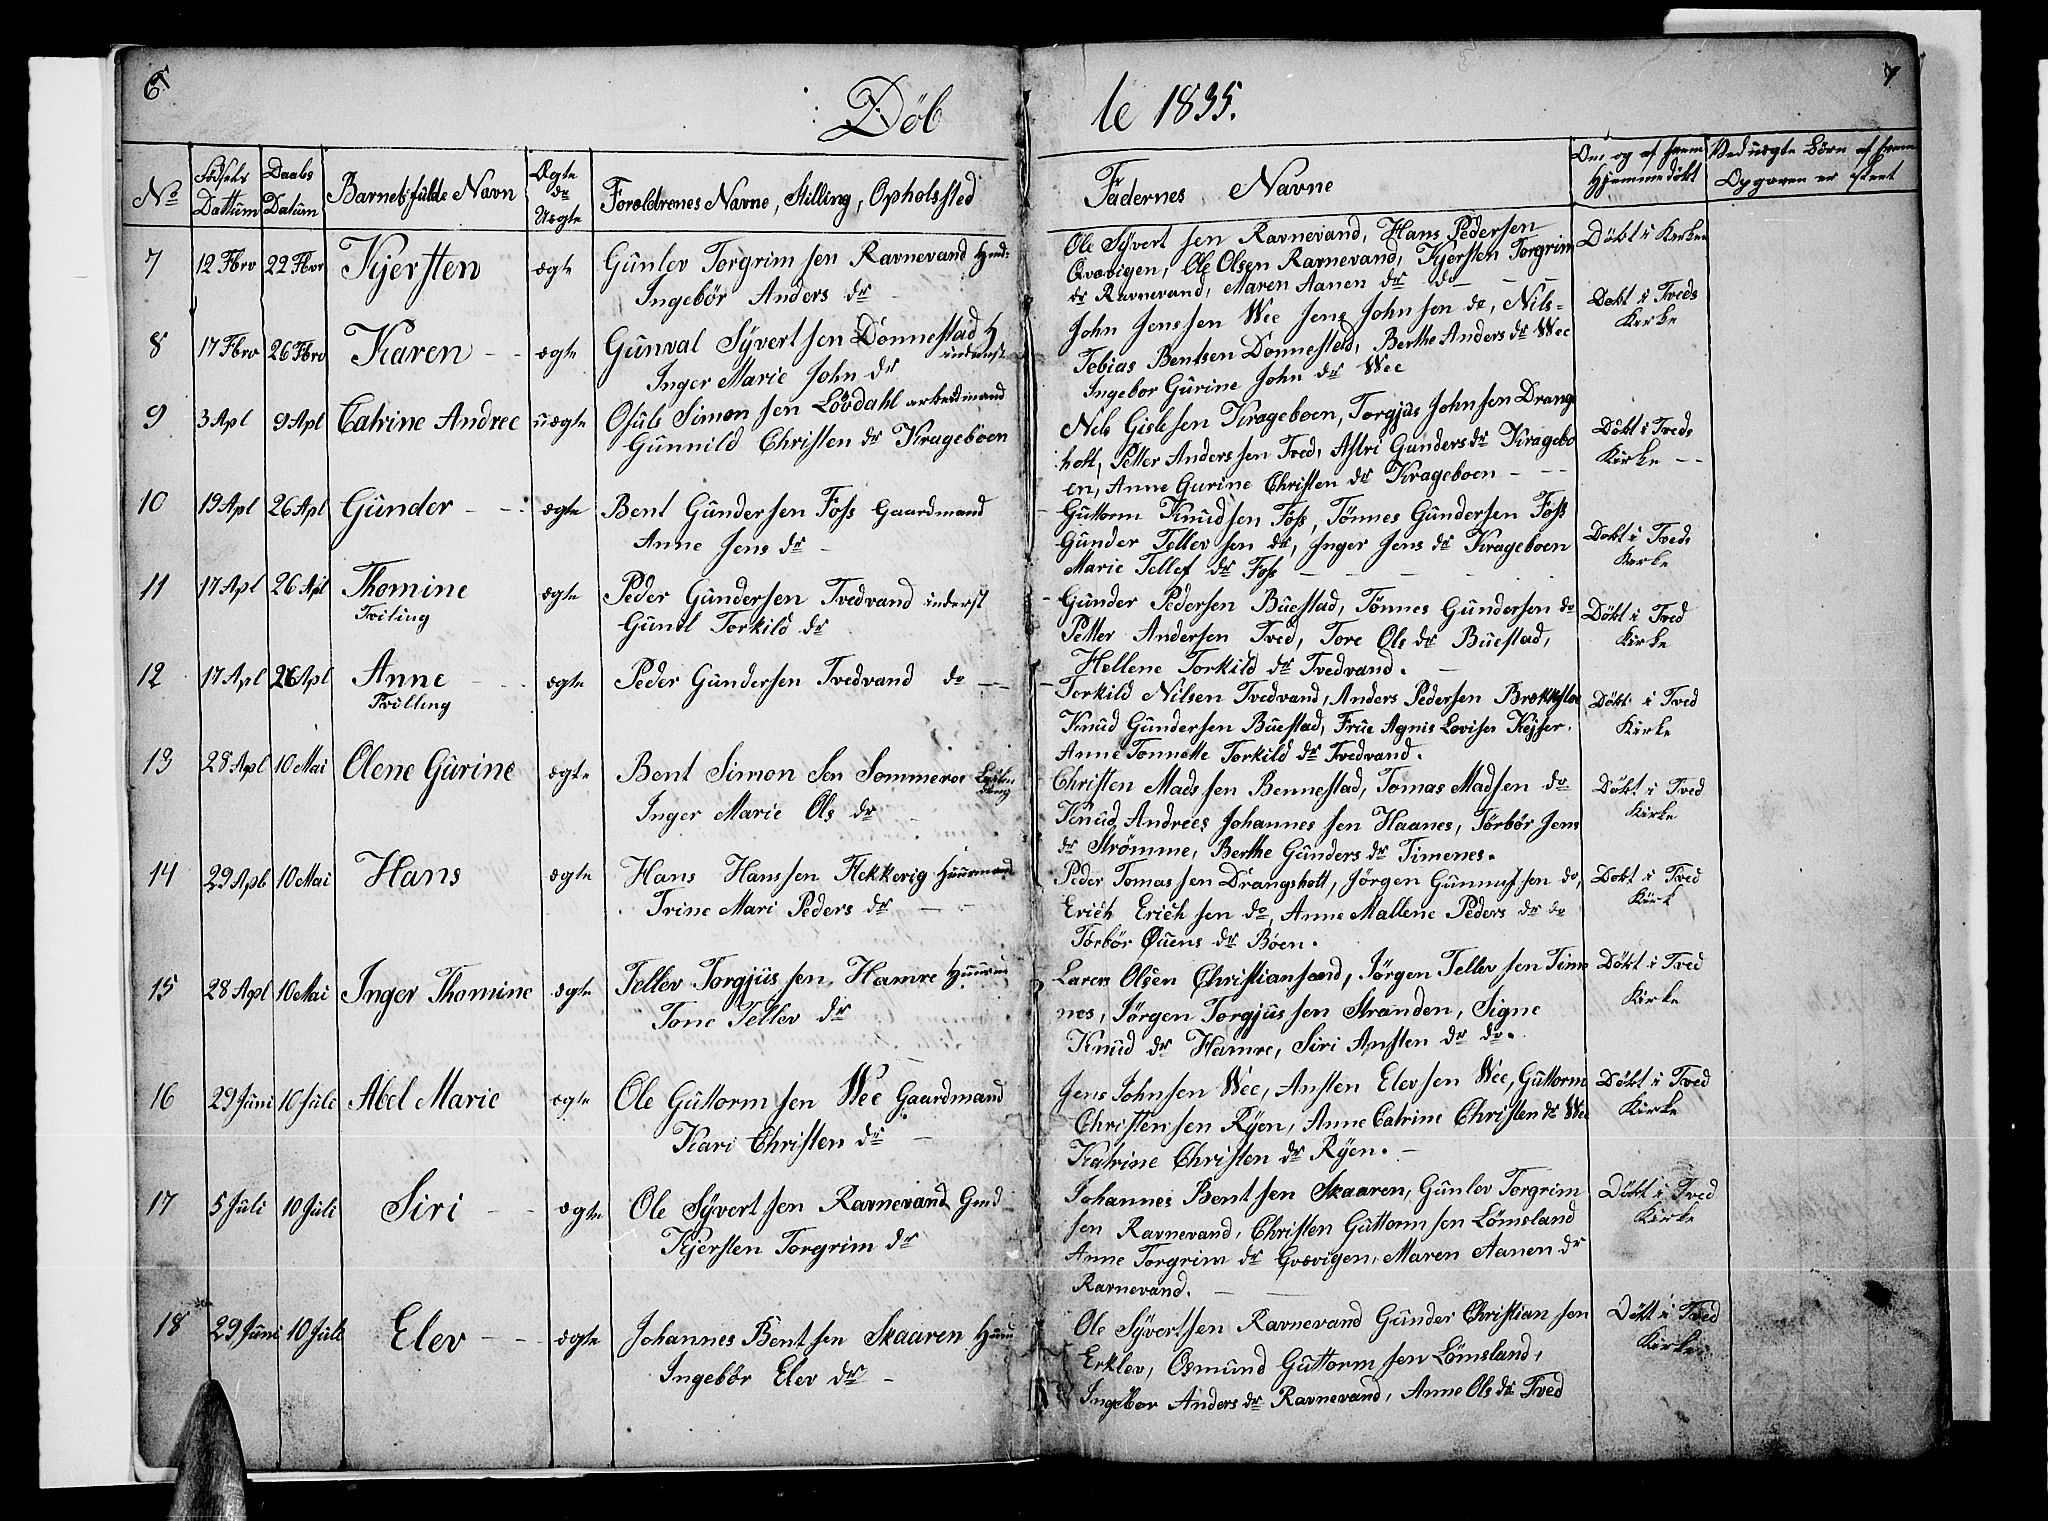 6
7
Döb
te 1835.
No
Födsels Dattum
Daabs Datum
Barnets fulde Navn
Ægte do Uægte
Forældrenes Navne, Stilling, Opholsted
Fadernes Navne
Om og af hvem Hjemmedöbt
Ved uægte Börn af hvem Opgaven er skeet
7 12 Fbro 22 Fbro Kjersten ægte
Gunlev Torgrim sen Ravnevand
Ingebör Anders dr
Ole Syvert sen Ravnevand, Hans Pedersen
Qvævigen, Ole Olsen Ravnevand, Kjersten Torgrim
dr Ravnevand, Maren Aanen dr do
Döbt i Kirken
8 17 Fbro 26 Fbro Karen ægte
Gunval Syvert sen Donnestad inderst
Inger Marie John dr
John Jenssen Wee Jens Johnsen do, Nils
Tobias Bentsen Donnestad, Berthe Anders dr Wee
Ingebor Gurine John dr Wee
Döbt i Tveds
Kirke
9 3 Apl 9 Apl Catrine Andree uægte
Osuls Simon sen Lövdahl arbeidmand
Gunnild Christen dr Krageboen
Nels Gislesen Krageboen, Torgjus Johnsen Drangs
holt, Petter Anders sen Tved, Astri Gunders dr Kragebo
en, Anne Gurine Christen dr Krageboen
Döbt i Tveds
Kirke
10 19 Apl 26 Apl Gunder ægte
Bent Gundersen Foss Gaardmand
Anne Jens dr
Guttorm Knudsen Foss, Tönnes Gundersen Foss
Gunder Tellev sen do, Inger Jens dr Krageboen
Marie Tellef dr Foss
Döbt i Tveds
Kirke
11 17 Apl 26 Apl Thomine ægte
Tviling
Peder Gundersen Tvedvand inderst
Gunil Torkild dr
Gunder Pedersen Buestad, Tönnes Gundersen do
Petter Andersen Tved, Tore Ols dr Buestad,
Hellene Torkild dr Tvedvand.
Döbt i Tved
Kirke
12 17 Apl 26 Apl Anne ægte
Tvilling
Peder Gundersen Tvedvand do
Torkild Nilsen Tvedvand, Anders Pedersen Brækkestöe
Knud Gundersen Buestad, Frue Agnis Lovise Kejser.
Anne Tonnette Torkild dr Tvedvand.
Döbt i Tved
Kirke
13 28 Apl 10 Mai Olene Gurine ægte
Bent Simon Sen Sommeroe
Inger Marie Ols dr
Christen Mads sen Bennestad, Tomas Madsen do
Knud Andrees Johannes sen Haanes, Torbör Jens
dr Strömme, Berthe Gunders dr Timenes.
Döbt i Tved
Kirke
14 29 Apl 10 Mai Hans ægte
Hans Hanssen Flekkerig Huusmand
Trine Mari Peders dr
Peder Tomas sen Drangsholt, Jörgen Gunnuf sen do,
Erich Erich sen do, Anne Mallene Peders dr do
Torbör Ouens dr Böen.
Döbt i Tved
Kirk
15 28 Apl 10 Mai Inger Thomine ægte
Tellev Torgjus sen Hamre Huusm
Tone Tellev dr
Lares Olsen Christiansand, Jörgen Tellev sen Time
nes, Jörgen Torgjus sen Stranden, Signe
Knud dr Hamre, Siri Ansten dr do.
Döbt i Tved
Kirke
16 29 Juni 10 Juli Abel Marie ægte
Ole Guttorm sen Wee Gaardmand
Kari Christen dr
Jens Johnsen Wee, Ansten Elev sen Wee, Guttorm
Christen sen Ryen, Anne Catrine Christen dr Wee
Katrine Christen dr Ryen.
Döbt i Tved
Kirke
17 5 Juli 10 Juli Siri ægte
Ole Syvert sen Ravnevand Gmd
Kjersten Torgrim dr
Johannes Bent sen Skaaren, Gunlev Torgrim
sen Ravnevand, Christen Guttorm sen Lömsland
Anne Torgrim dr Qvævigen, Maren Aanen dr
Ravnevand.
Döbt i Tved
Kirke
18 29 Juni 10 Juli Elev ægte
Johannes Bent sen Skaaren Huus
Ingebör Elev dr
Ole Syvertsen Ravnevand Gunder Christian sen
Erklev, Osmund Guttorm sen Lömsland,
Ingebor Anders dr Ravnevand, Anne Ols dr Tved
Döbt i Tved
Kirke